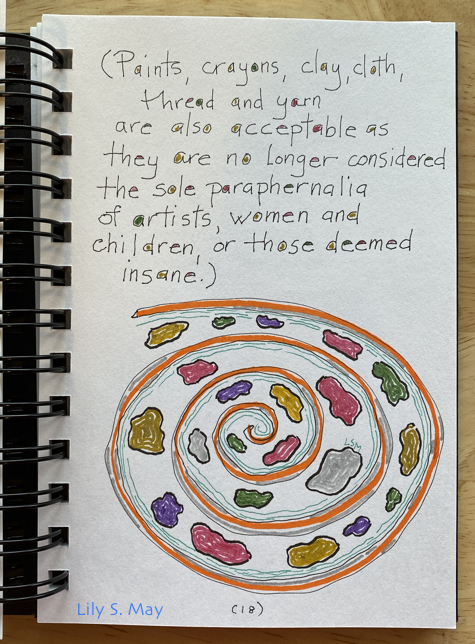 (Paints, crayons, clay, cloth,
thread and yarn
are also acceptable as
they are no longer considered
the sole paraphernalia
of artists, women and
children, or those deemed
insane.)
LSM
Lily S. May
(18)